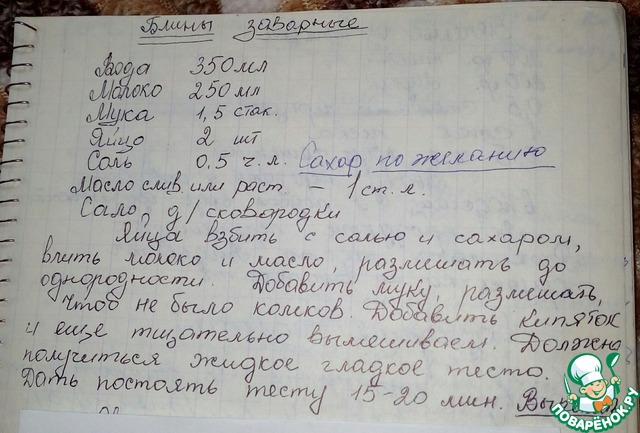 Блины заварные
Вода 350 мл
Молоко 250 мл
Мука 1,5 стак.
Яйцо 2 шт
Соль 0,5 ч.л. Сахар по желанию
Масло слив. или раст. – 1 ст. л.
Сало д/сковородки
Яйца взбить с солью и сахаром,
влить молоко и масло, размешать до
однородности. Добавить муку, размешать,
чтоб не было комков. Добавить кипяток
и еще тщательно вымешиваем. Должна
получиться жидкое гладкое тесто.
Дать постоять тесту 15-20 мин.
ПОВАРЁНОК.РУ